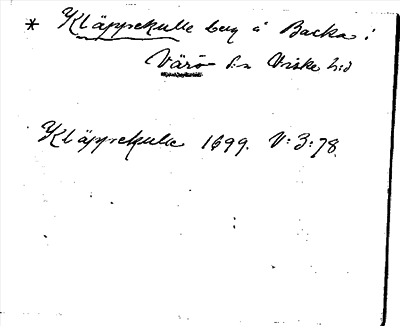 * Kläppekulle berg å Backa i
Värö sn Viske hd
Kläppekulle 1699. V:3:78.